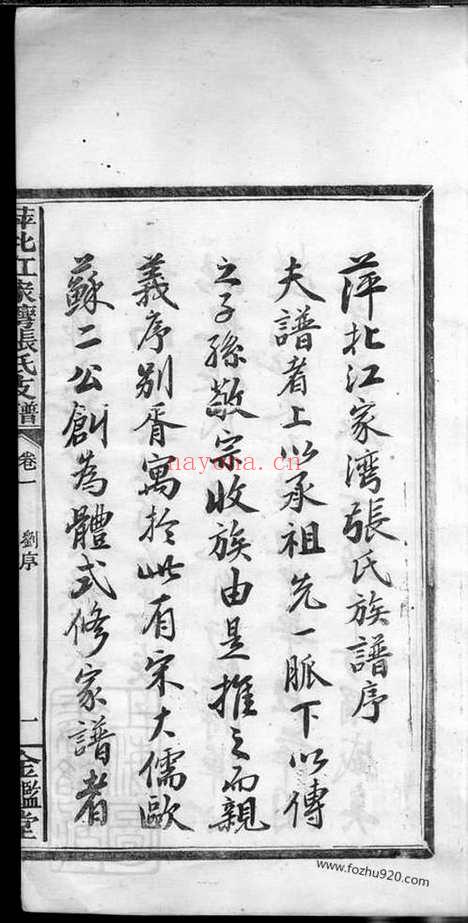 萍北江家湾張氏族譜序
夫譜者上以承祖先一脈下以傳
之子孫敬宗收族由是推之而親
義序别胥寓於此有宋大儒歐
蘇二公創為體式修家譜者
萍北江家灣張氏支譜
卷一
劉序
一
金鑑堂
nayona.cn
www.fozhu920.com